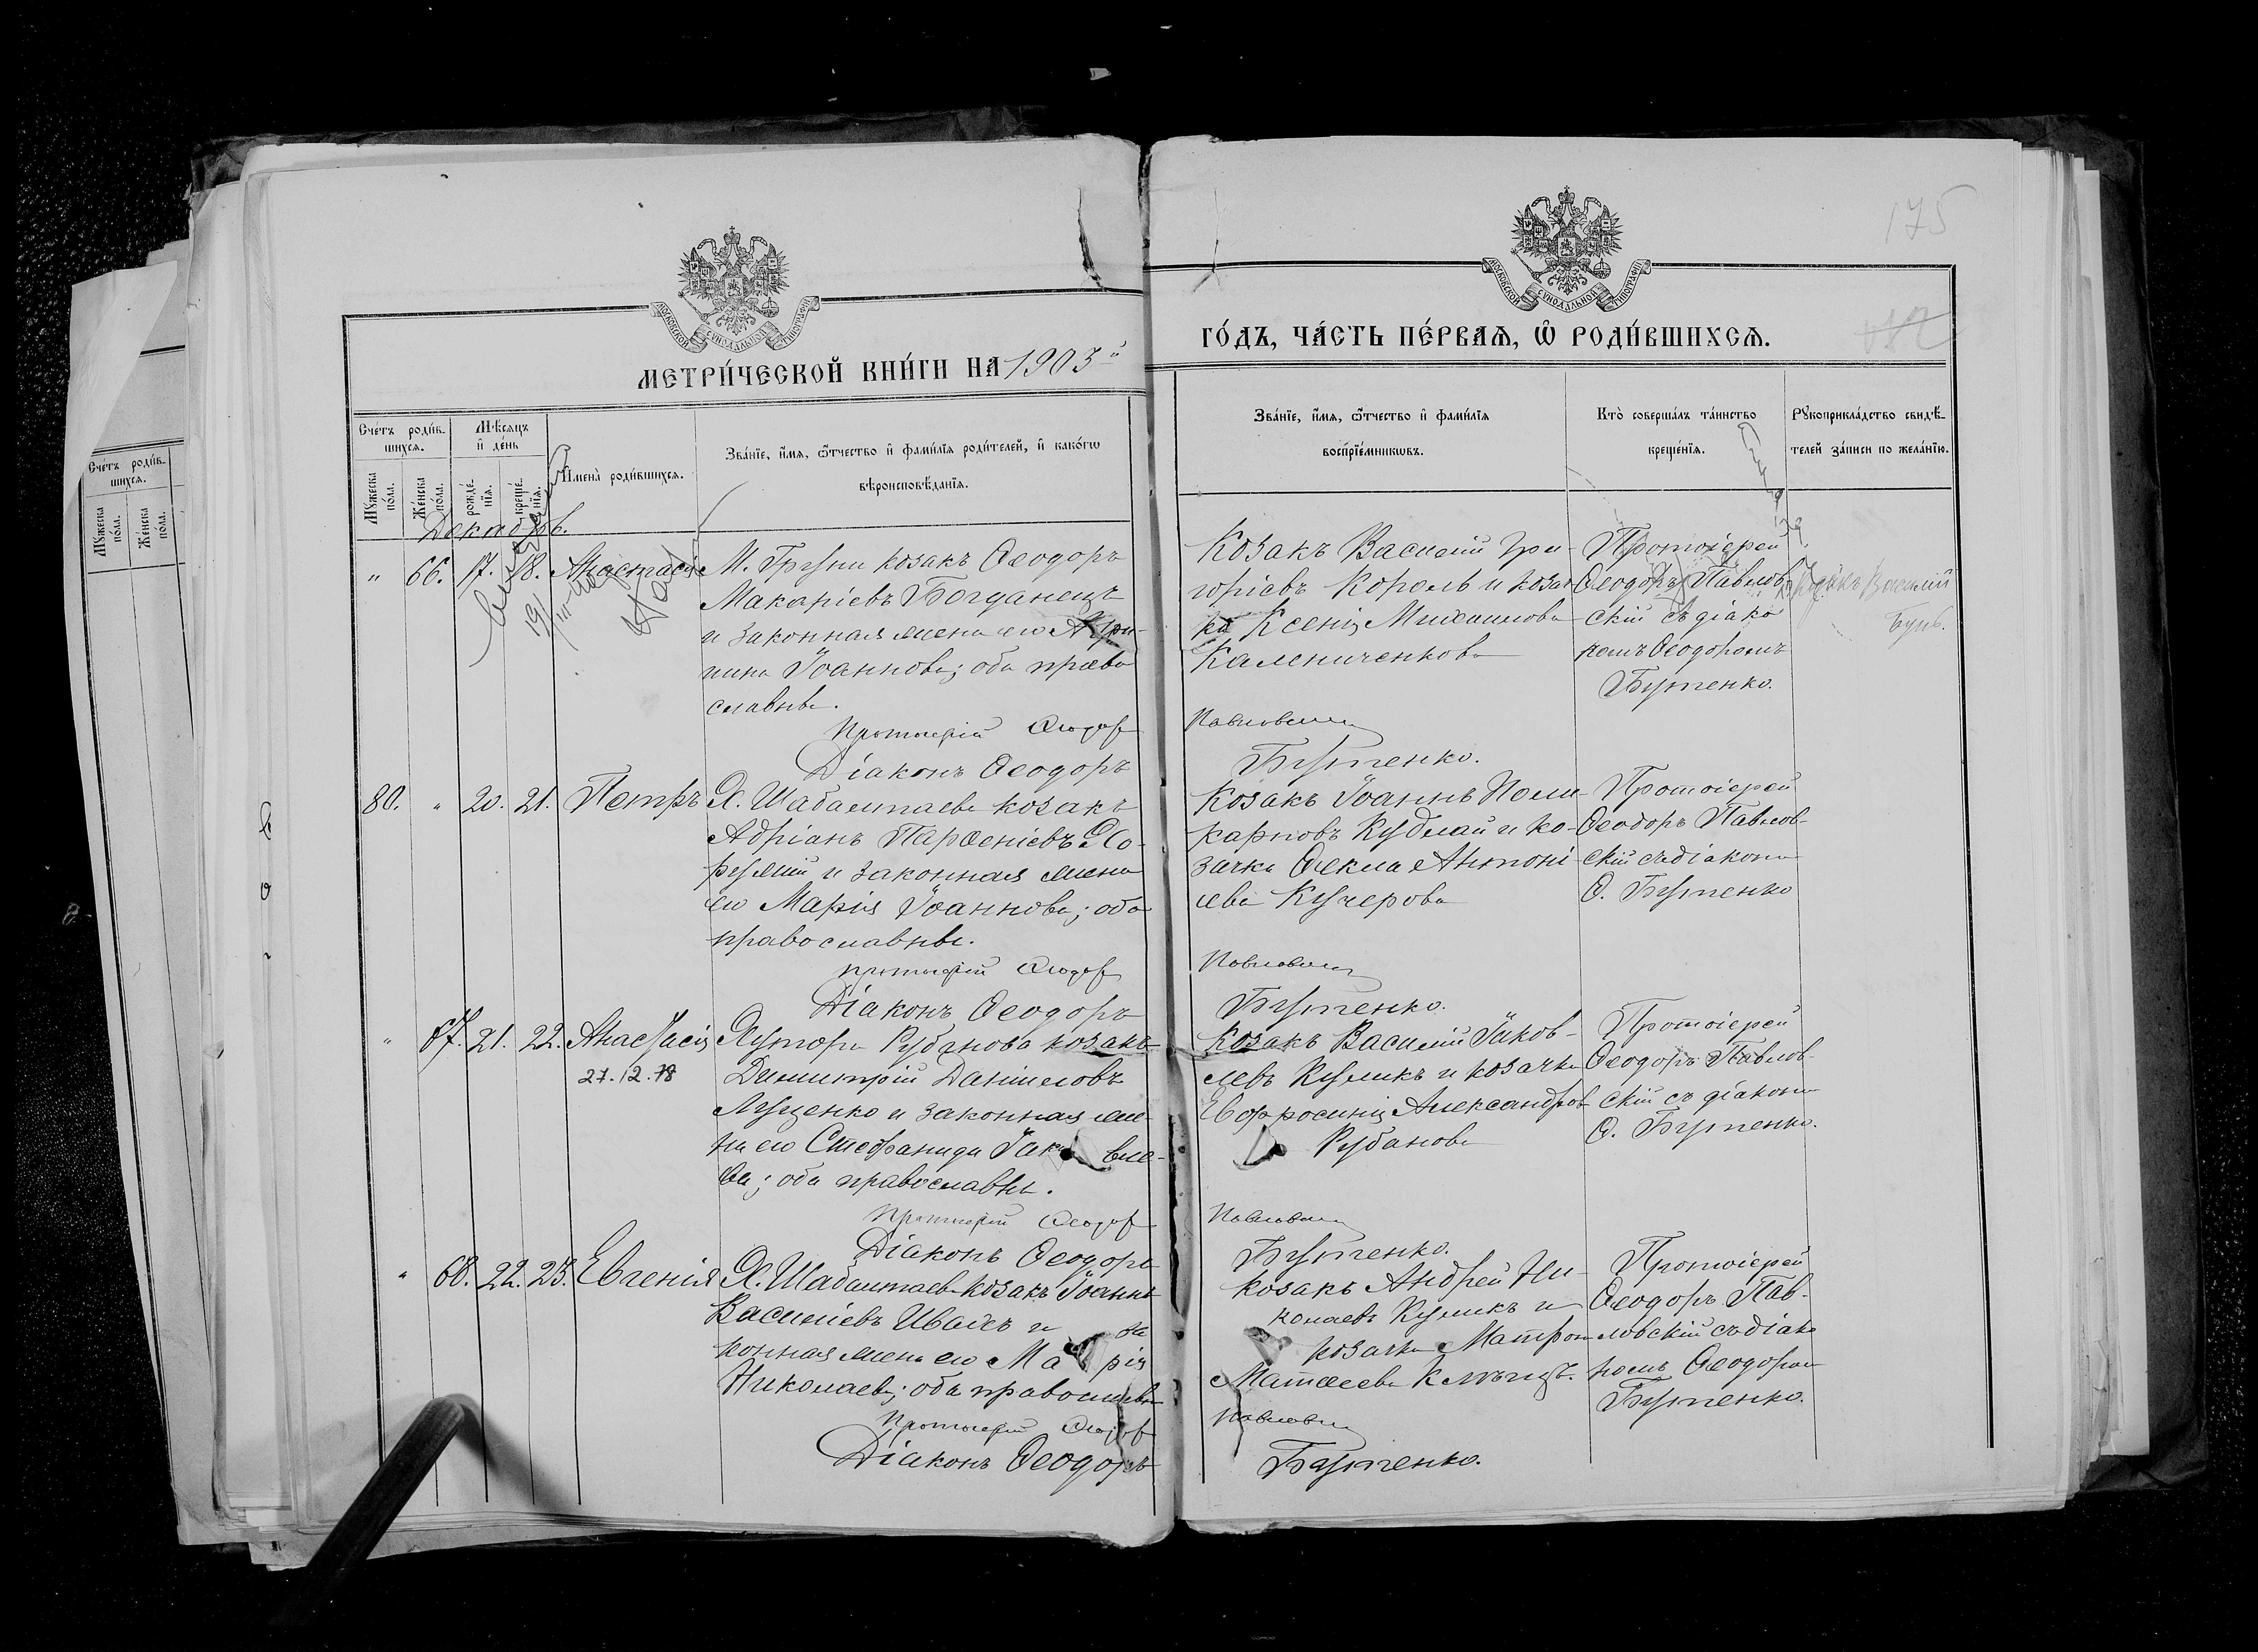 175
МОСКОВСКОЙ СУНОДАЛЬНОЙ ТИПОГРАФІИ
МОСКОВСКОЙ СУНОДАЛЬНОЙ ТИПОГРАФІИ
МЕТРИ́ЧЕСКОЙ КНИ́ГИ НА 1903й
ГО́ДЪ, ЧА́СТЬ ПЕ́РВАЯ, Ѡ РОДИ́ВШИХСЯ.
Сче́тъ роди́в-
шихся.
Мꙋжеска по́ла.
Же́нска по́ла.
Мѣ́сяцъ
и де́нь
рожде́-нїя.
креще́-нїя.
Имена̀ роди́вшихся.
Зва́нїе, и́мя, ѻ҆́тчество и фами́лїя роди́телей, и како́гѡ
вѣроисповѣ́данїя.
Зва́нїе, и́мя, ѻ҆́тчество и фами́лїя
воспрїе́мникѡвъ.
Кто̀ соверша́лъ та́инство
креще́нїя.
Рꙋкоприкла́дство свидѣ́-
телей за́писи по жела́нїю.
Сче́тъ роди́в-
шихся.
Мꙋжеска по́ла.
Же́нска по́ла.
Декабрь.
" 66. 17. 18. Анастасія
М. Груни козакъ Ѳеодоръ
Макаріевъ Богданецъ
и законная жена его Акри-
пина Іоаннова; оба право
славны.
Протоіерей Ѳеодоръ
Діаконъ Ѳеодоръ
Козакъ Василій Гри-
горіевъ Король и козач
ка Ксенія Михаилова
Калениченкова
Павловскій
Бутенко.
Протоіерей
Ѳеодоръ Павлов
скій съ діако
номъ Ѳеодоромъ
Бутенко.
80. " 20. 21. Петръ
Х. Шабалтаева козакъ
Адріанъ Парѳеніевъ Хо-
ружій и законная жена
его Марія Іоаннова; оба
православны.
Протоіерей Ѳеодоръ
Діаконъ Ѳеодоръ
Козакъ Іоаннъ Поли-
карповъ Кублай и ко-
зачка Ѳекла Антоні
ева Кучерова
Павловскій
Бутенко.
Протоіерей
Ѳеодоръ Павлов-
скій съ діакономъ
Ѳ. Бутенко
" 67. 21. 22. Анастасія
27.12.78
Хутора Рубанова козакъ
Димитрій Даніиловъ
Луценко и законная же-
на его Стефанида Іаковле-
ва; оба православны.
Протоіерей Ѳеодоръ
Діаконъ Ѳеодоръ
козакъ Василій Іаков-
левъ Куликъ и козачка
Евфросинія Александров
Рубанова
Павловскій
Бутенко.
Протоіерей
Ѳеодоръ Павлов-
скій съ діакономъ
Ѳ. Бутенко.
" 68. 22. 23. Евгенія
Х. Шабалтаева козакъ Іоаннъ
Василіевъ Ивадез и за
конная жена его Марія
Николаева; оба православны
Протоіерей Ѳеодоръ
Діаконъ Ѳеодоръ
козакъ Андрей Ни-
колаевъ Куликъ и
козачка Матрона
Матѳеева
Павловскій
Бутенко.
Протоіерей
Ѳеодоръ Пав-
ловскій съ діако
номъ Ѳеодоромъ
Бутенко.